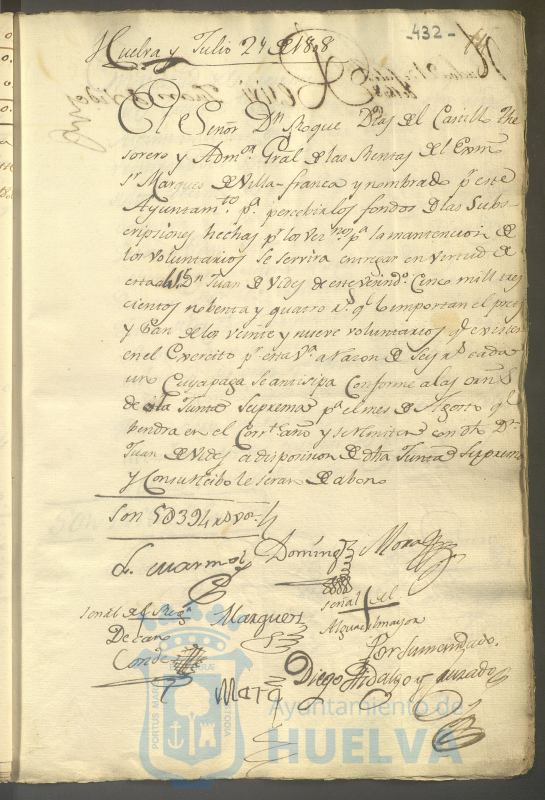 -432-
Huelva y Julio 24 de 1808
El Señor Dn Roque Dias del Castillo The
sorero y Admor Gral de las Rentas del Exmo
Sr Marques de Villa-franca y nombrado pr este
Ayuntamto pa percebir los fondos de las Subs
cripciones hechas pr los Veznos pa la mantencion de
los voluntarios se servira entregar en virtud de
esta a Dn Juan de Vides de este Vezindo Cinco mil tres
cientos nobenta y quatro rs qe importan el prest
y Pan de los veinte y nueve voluntarios qe existen
en el Exercito pr esta Va a razon de Seis rs cada
uno Cuya paga Se antisipa Conforme a las orns
de la Junta Suprema pa el mes de Agosto qe
bendra en el Corrte año y se remiten con dho Dn
Juan de Vides a disposicion de dha Junta Suprema
y Con su recibo le seran de abono
Son 5D394 rs von
Domingz Mora
señal del
Alguacil mayor
señal del Regr
Decano
Conde
Marquez
Por su mandado.
Diego Hidalgo y Jurado
Ayuntamiento de
HUELVA